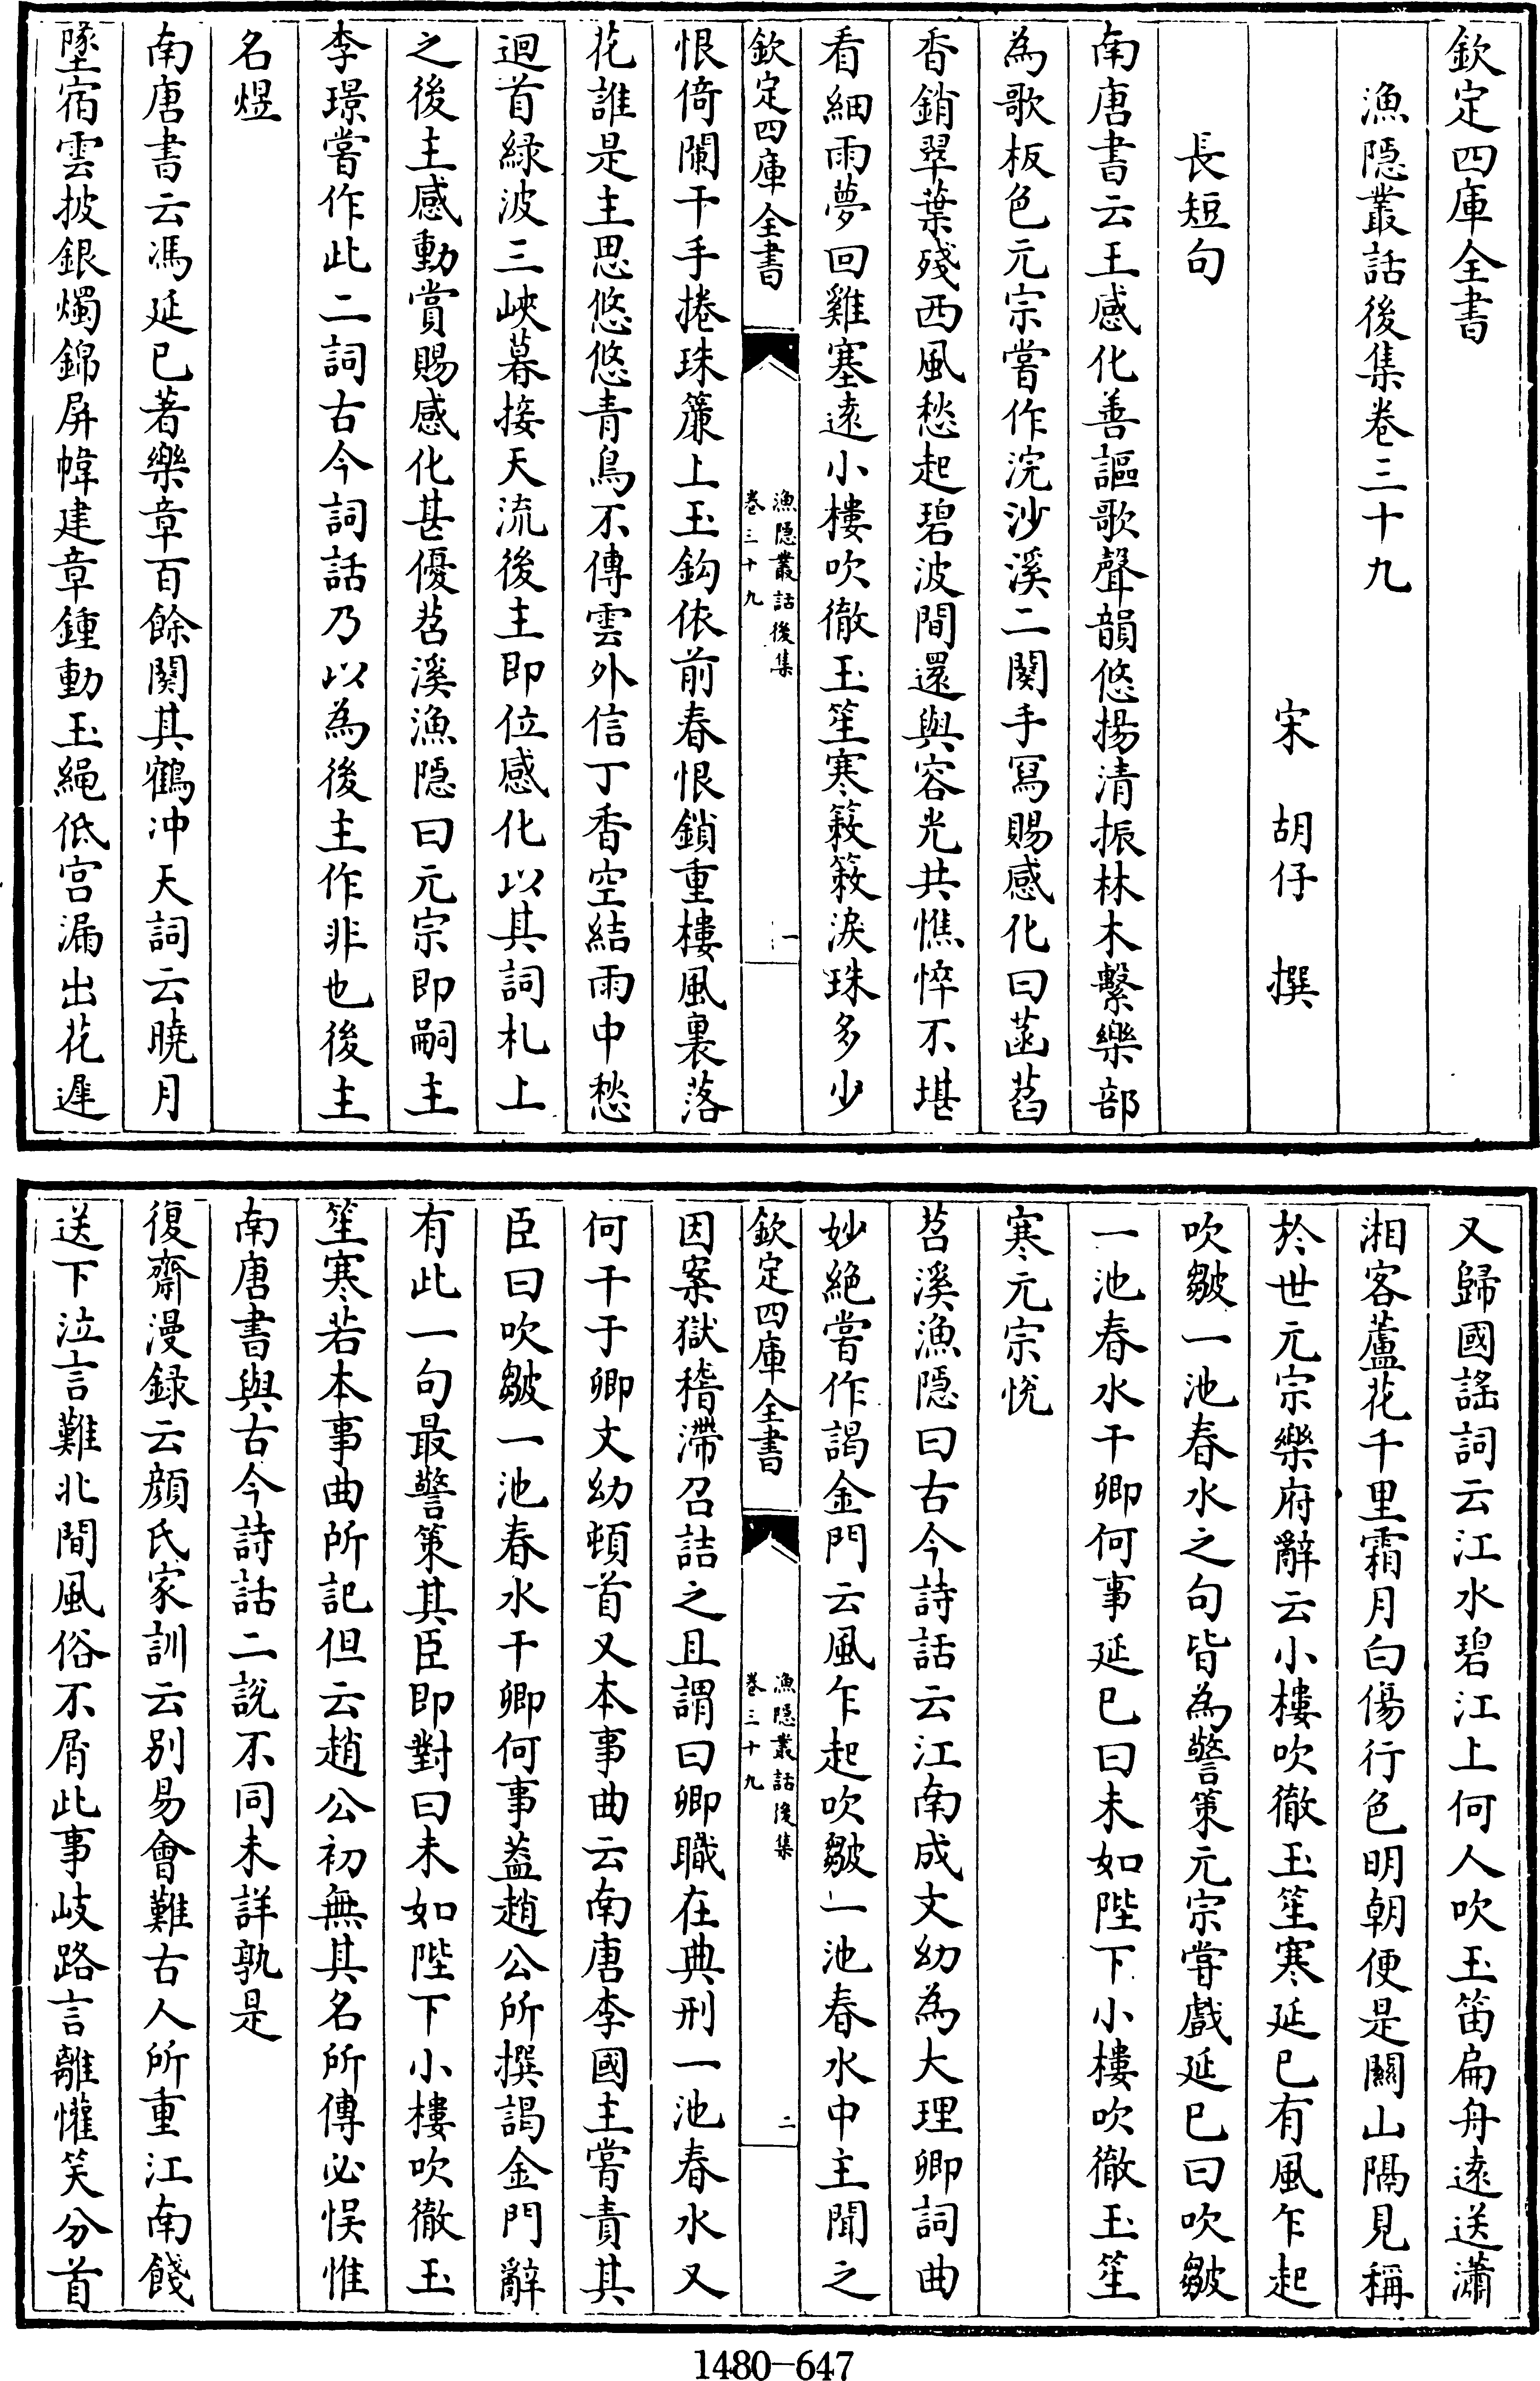 欽定四庫全書
漁隱叢話後集卷三十九
宋 胡仔 撰
長短句
南唐書云王感化善謳歌聲韻悠揚清振林木繫樂部
為歌板色元宗嘗作浣沙溪二闋手冩賜感化曰菡萏
香銷翠葉殘西風愁起碧波間還與容光共憔悴不堪
看細雨夢回雞塞遠小樓吹徹玉笙寒簌簌淚珠多少
欽定四庫全書
漁隱叢話後集
卷三十九
一
恨倚闌干手捲珠簾上玉鈎依前春恨鎖重樓風裏落
花誰是主思悠悠青鳥不傳雲外信丁香空結雨中愁
迴首緑波三峽暮接天流後主即位感化以其詞札上
之後主感動賞賜感化甚優苕溪漁隱曰元宗即嗣主
李璟嘗作此二詞古今詞話乃以為後主作非也後主
名煜
南唐書云馮延已著樂章百餘闋其鶴冲天詞云曉月
墜宿雲披銀燭錦屏幃建章鍾動玉繩低宫漏出花遲
又歸國謡詞云江水碧江上何人吹玉笛扁舟逺送瀟
湘客蘆花千里霜月白傷行色明朝便是關山隔見稱
於世元宗樂府辭云小樓吹徹玉笙寒延已有風乍起
吹皺一池春水之句皆為警策元宗嘗戲延已曰吹皺
一池春水干卿何事延已曰未如陛下小樓吹徹玉笙
寒元宗悦
苕溪漁隱曰古今詩話云江南成文幼為大理卿詞曲
妙絶嘗作謁金門云風乍起吹皺一池春水中主聞之
欽定四庫全書
漁隱叢話後集
卷三十九
二
因案獄稽滯召詰之且謂曰卿職在典刑一池春水又
何干于卿文幼頓首又本事曲云南唐李國主嘗責其
臣曰吹皺一池春水干卿何事葢趙公所撰謁金門辭
有此一句最警策其臣即對曰未如陛下小樓吹徹玉
笙寒若本事曲所記但云趙公初無其名所傳必悮惟
南唐書與古今詩話二說不同未詳孰是
復齋漫録云顔氏家訓云别易會難古人所重江南餞
送下泣言難北間風俗不屑此事岐路言離懽笑分首
1480-647